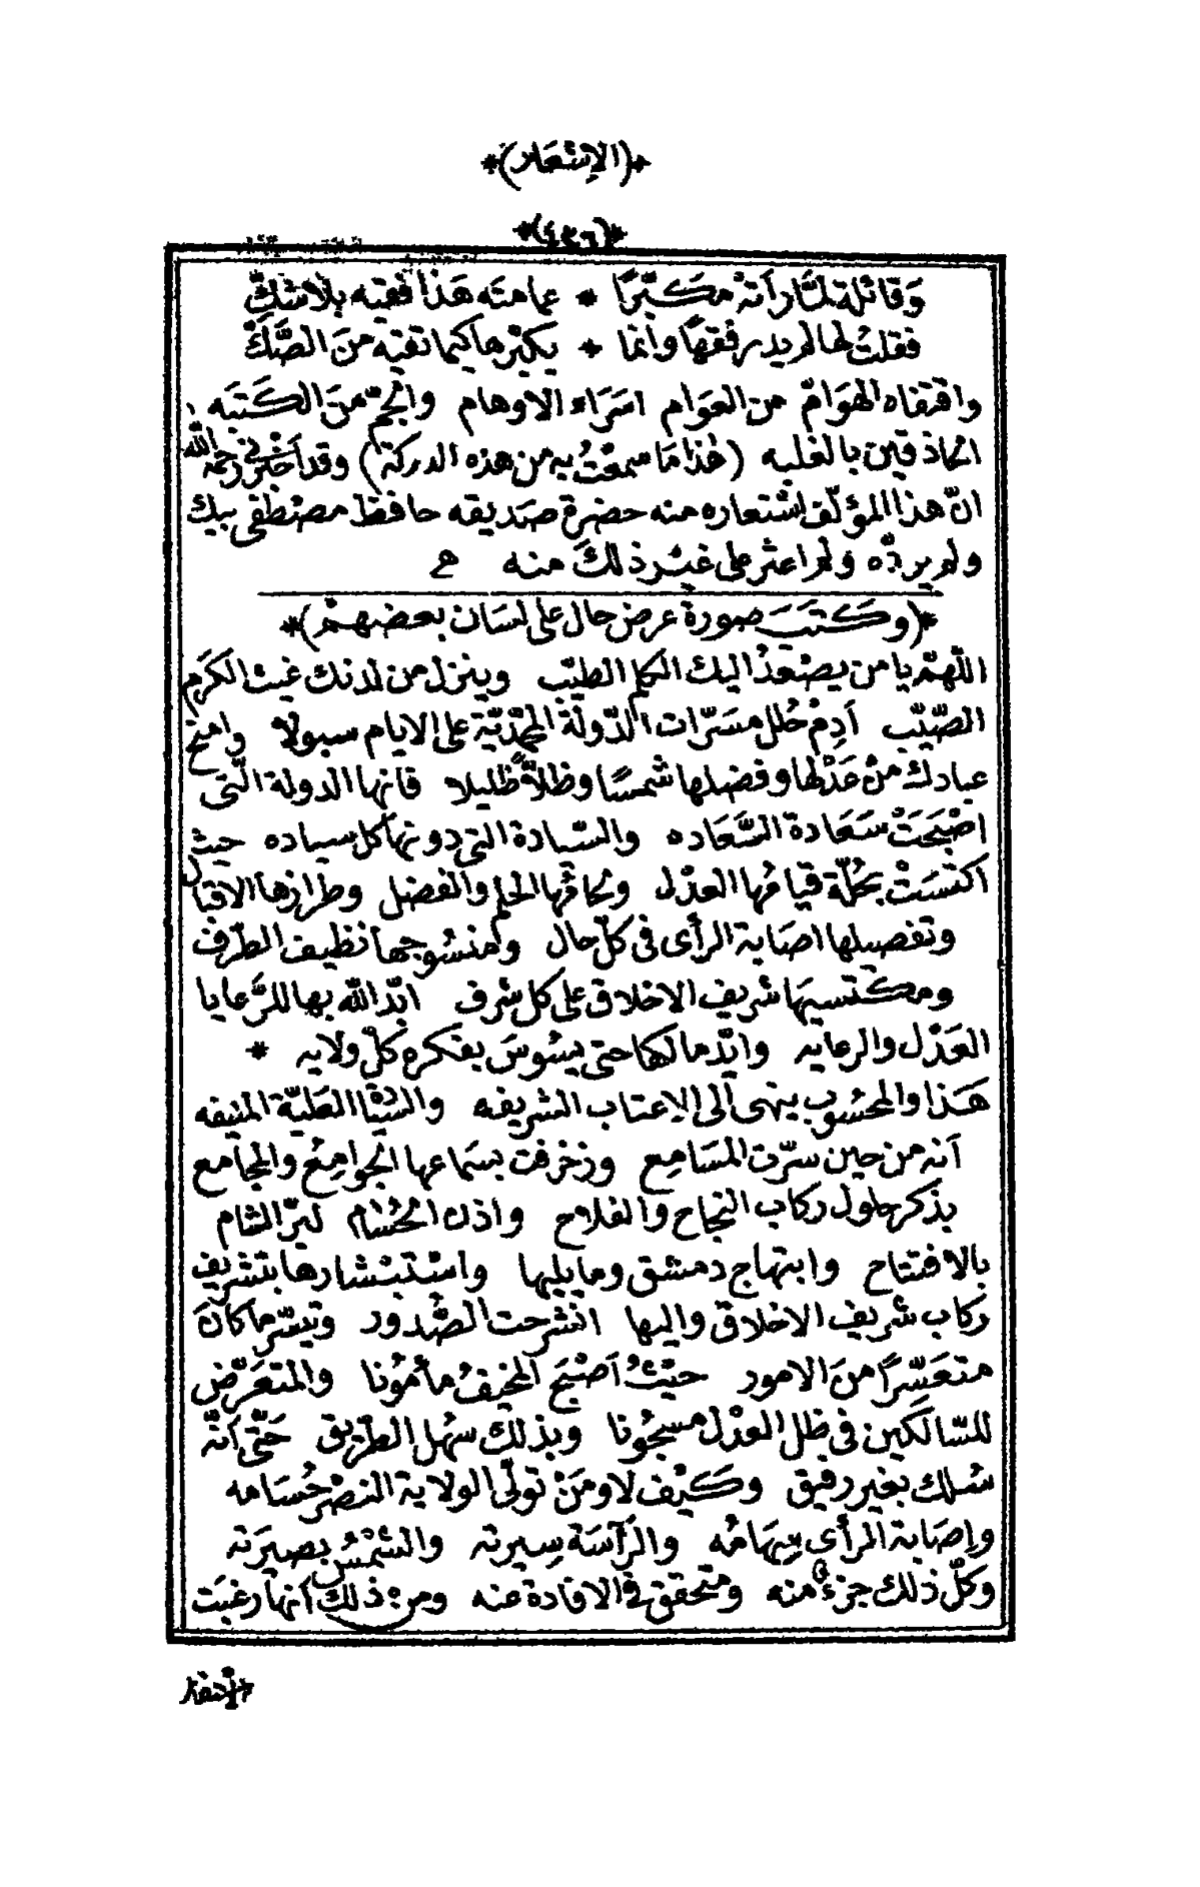 *(الاشعار)*
*(٤٣٦)*
وَقائلة لمّا رأته مكبّرًا * عمامته هَذا فقيه بلا شكّ
فقلتُ لها لم يدر فقهًا وانما * يكبّرها كيما تقيه منَ الصَّكّ
وافرقاه الهوَامّ من العوَام اسَرَاء الاوهام والجمّ منَ الكتبَه
الحاذقين بالغلبه (هٰذا مَا سمعْتُ به من هذه الدركة) وقد اخبرني رحمه الله
انّ هذا المؤلّف اشتعاره منه حضرة صَديقه حافظ مصْطفى بيك
ولم يردّه ولم اعثر على غيْر ذلكَ منه
*(وكتبَ صورة عرض حال على لسَان بعضهمْ)*
اللّهمّ يا من يصْعَدُ اليك الكلم الطيّب وينزل من لدنك غيث الكرَم
الصّيّب أدِمْ حُلل مسَرّات الدّولة المحمّديّة على الايام سبولا وامنح
عبادك منْ عَدْلها وفضلها شمسًا وظلاّ ظليلا فانها الدولة الّتى
اصْبَحَتْ سَعَادة السَّعَاده والسّيادة التى دونها كل سياده حيث
اكتسَتْ بحُلّة قيامُها العدْل ولحافُها الحلم والفضل وطرازها الاقبال
وتفصيلها اصَابة الرأى فى كلّ حال ومنسُوجها نظيف الطّرف
ومكتسيهَا شريف الاخلاق على كل شرف ابّد الله بها للرَّعايا
العَدْل والرعايه وايّد مالكها حتى يسُوسَ بفكره كلّ ولايه *
هَذا والمحسُوب ينهى الى الاعتاب الشريفه والسّدّة العَليّة المنيفه
أنه من حين سرّت المسَامِع وزخرفت بسَماعها الجوامِعُ والمجامع
بذكر حلول ركاب النجاح والفلاح واذن الحُسَام لبرّ الشام
بالافتتاح وابتهاج دمشق وما يليها واسْتبْشارها بتشريف
ركاب شريف الاخلاق واليها انشرحت الصُّدور وتيسّر ما كانَ
متعَسِّرًا منَ الامور حيْثُ اَصْبَحَ المخيفُ مأمُونا والمتعَرّض
للسّالكين فى ظل العدْل مسجُونا وبذلك سهُل الطّريق حَتّى أنّه
سُلك بغير رفيق وكيْف لا ومَنْ تولّى الولاية النصْر حُسَامه
وإصَابة الرأى سِهَامُه والرَّآسَة سِيرته والشمْسُ بصيرَته
وكلّ ذلك جزءٌ منه ومتحقق فى الافادة عنه ومن ذلك أنها رغبَت